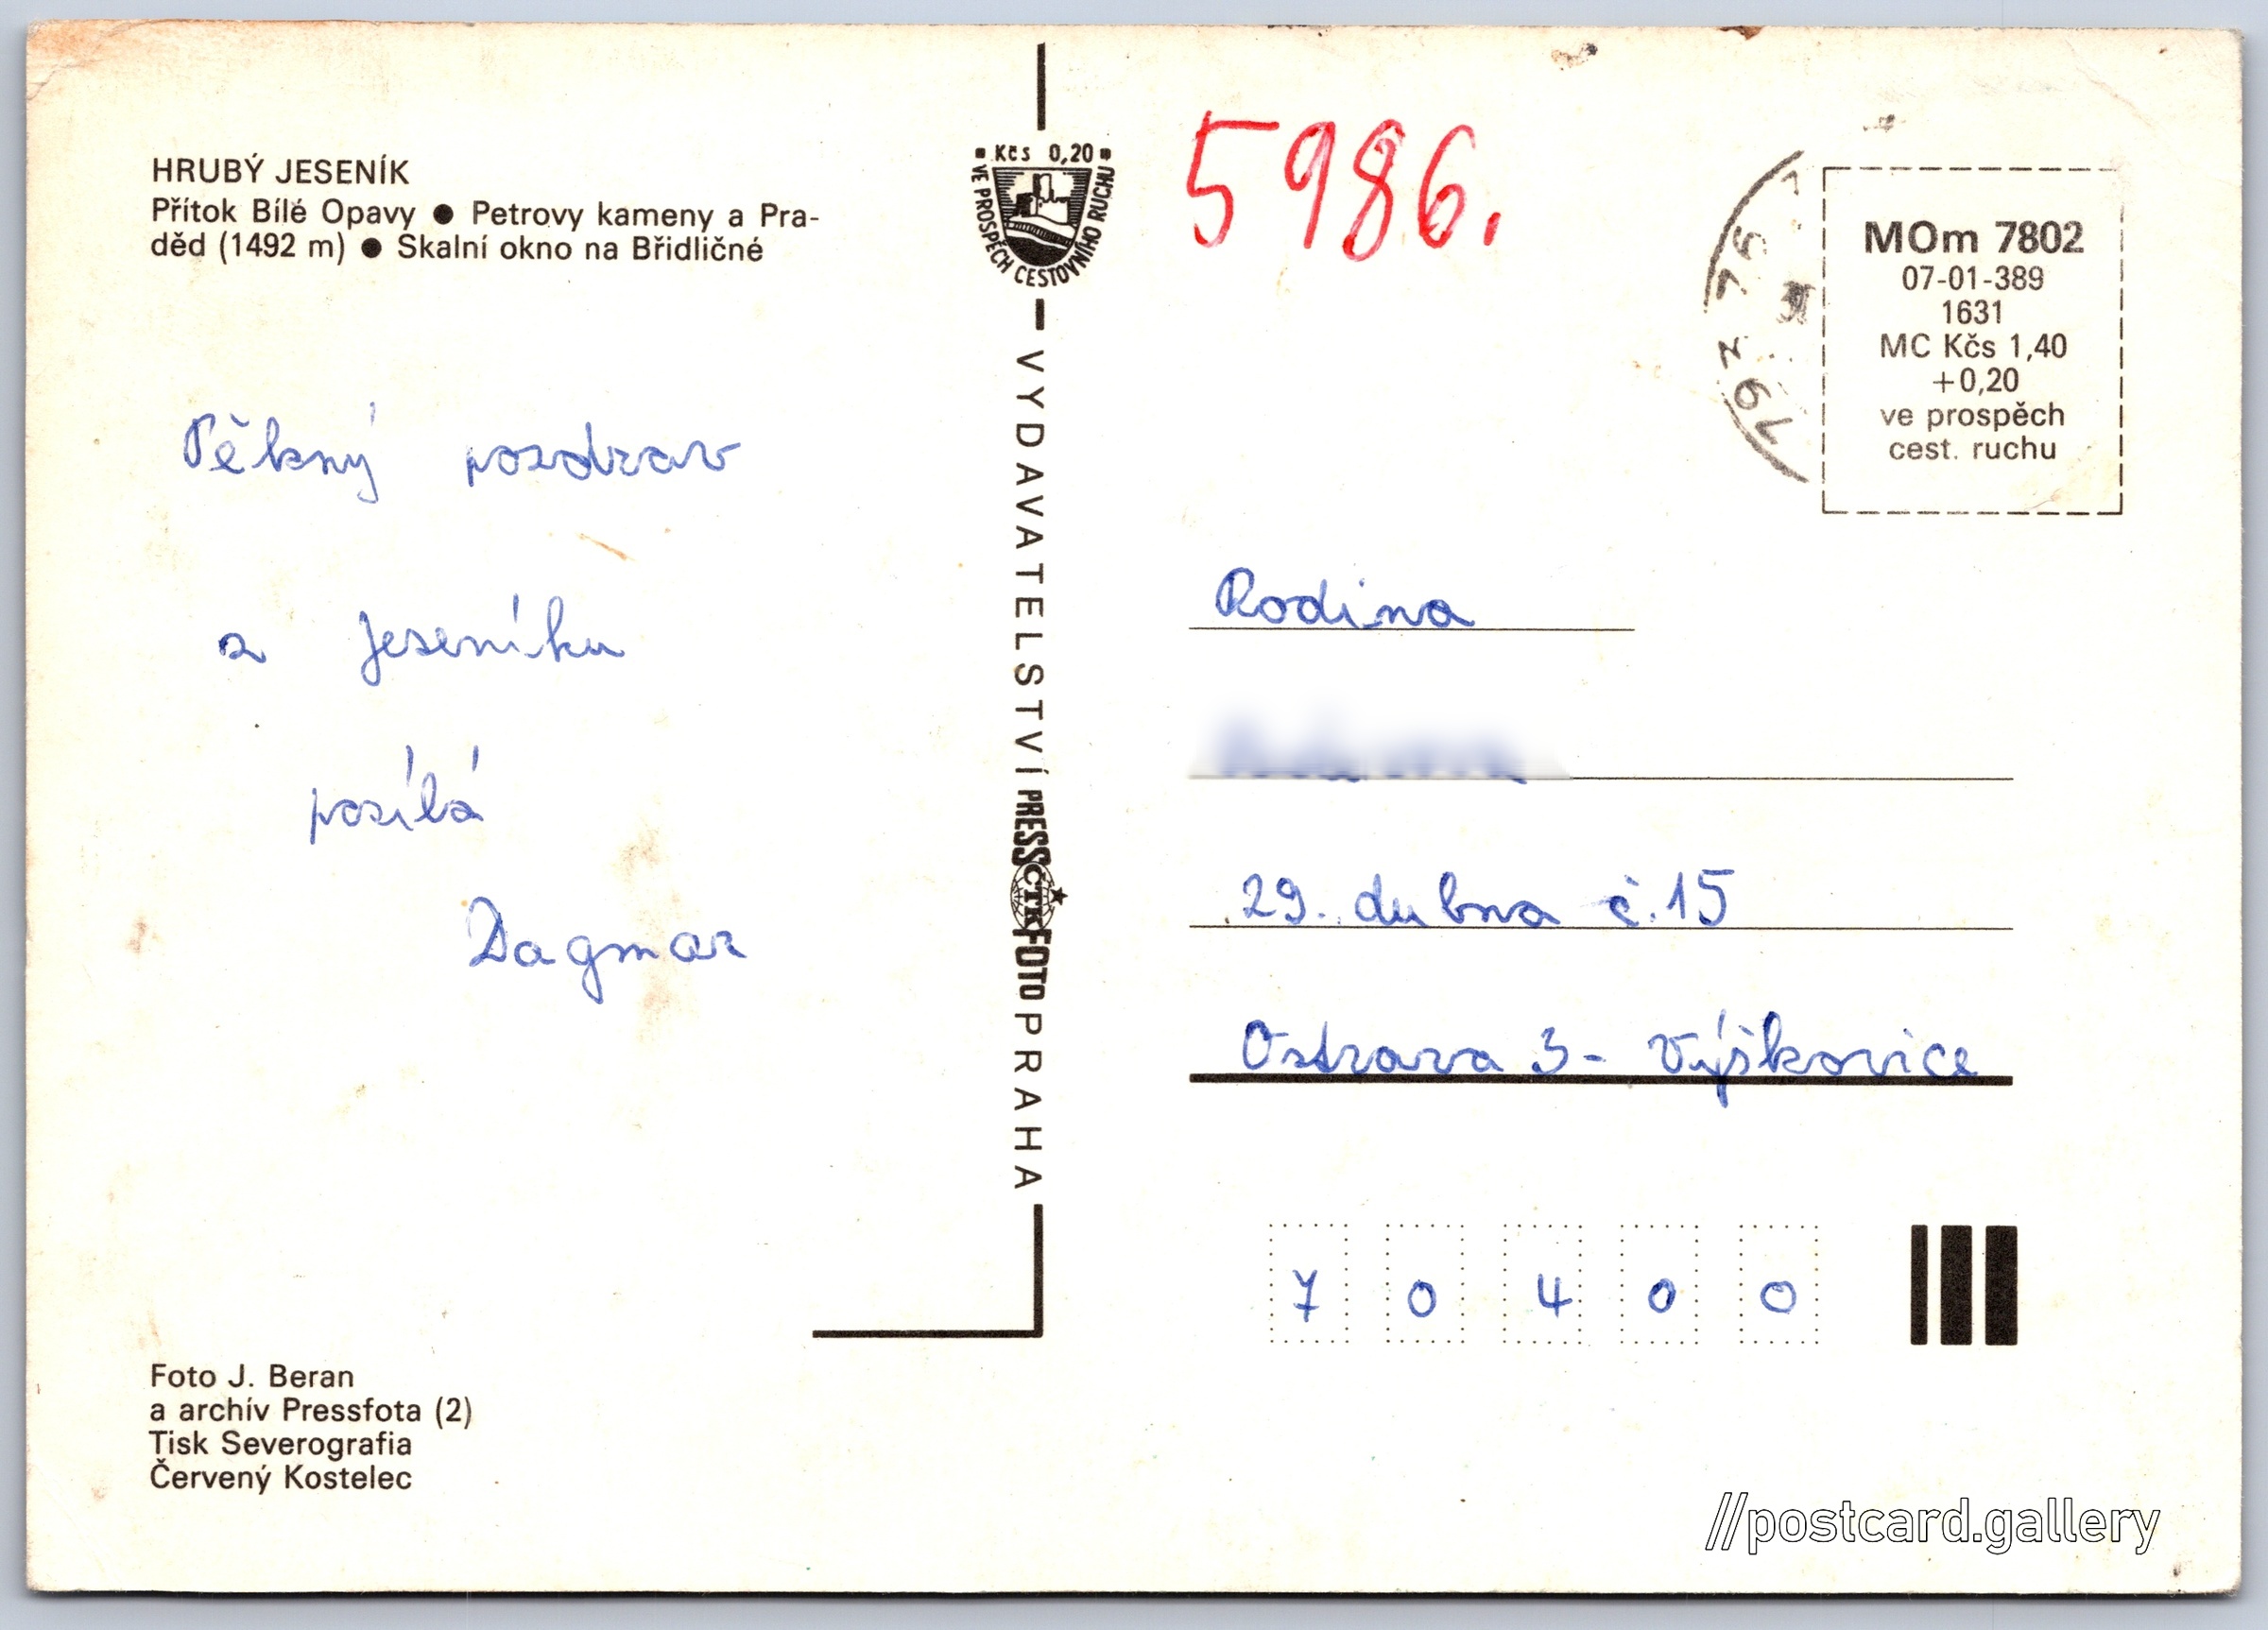 HRUBÝ JESENÍK
Přítok Bílé Opavy ● Petrovy kameny a Pra-
děd (1492 m) ● Skalní okno na Břidličné
Pěkný pozdrav
z Jeseníku
posílá
Dagmar
Foto J. Beran
a archív Pressfota (2)
Tisk Severografia
Červený Kostelec
Kčs 0,20
VE PROSPĚCH CESTOVNÍHO RUCHU
VYDAVATELSTVÍ PRESSČTKFOTO PRAHA
5986.
MOm 7802
07-01-389
1631
MC Kčs 1,40
+0,20
ve prospěch
cest. ruchu
Rodina
29. dubna č.15
Ostrava 3- Výškovice
7 0 4 0 0
//postcard.gallery